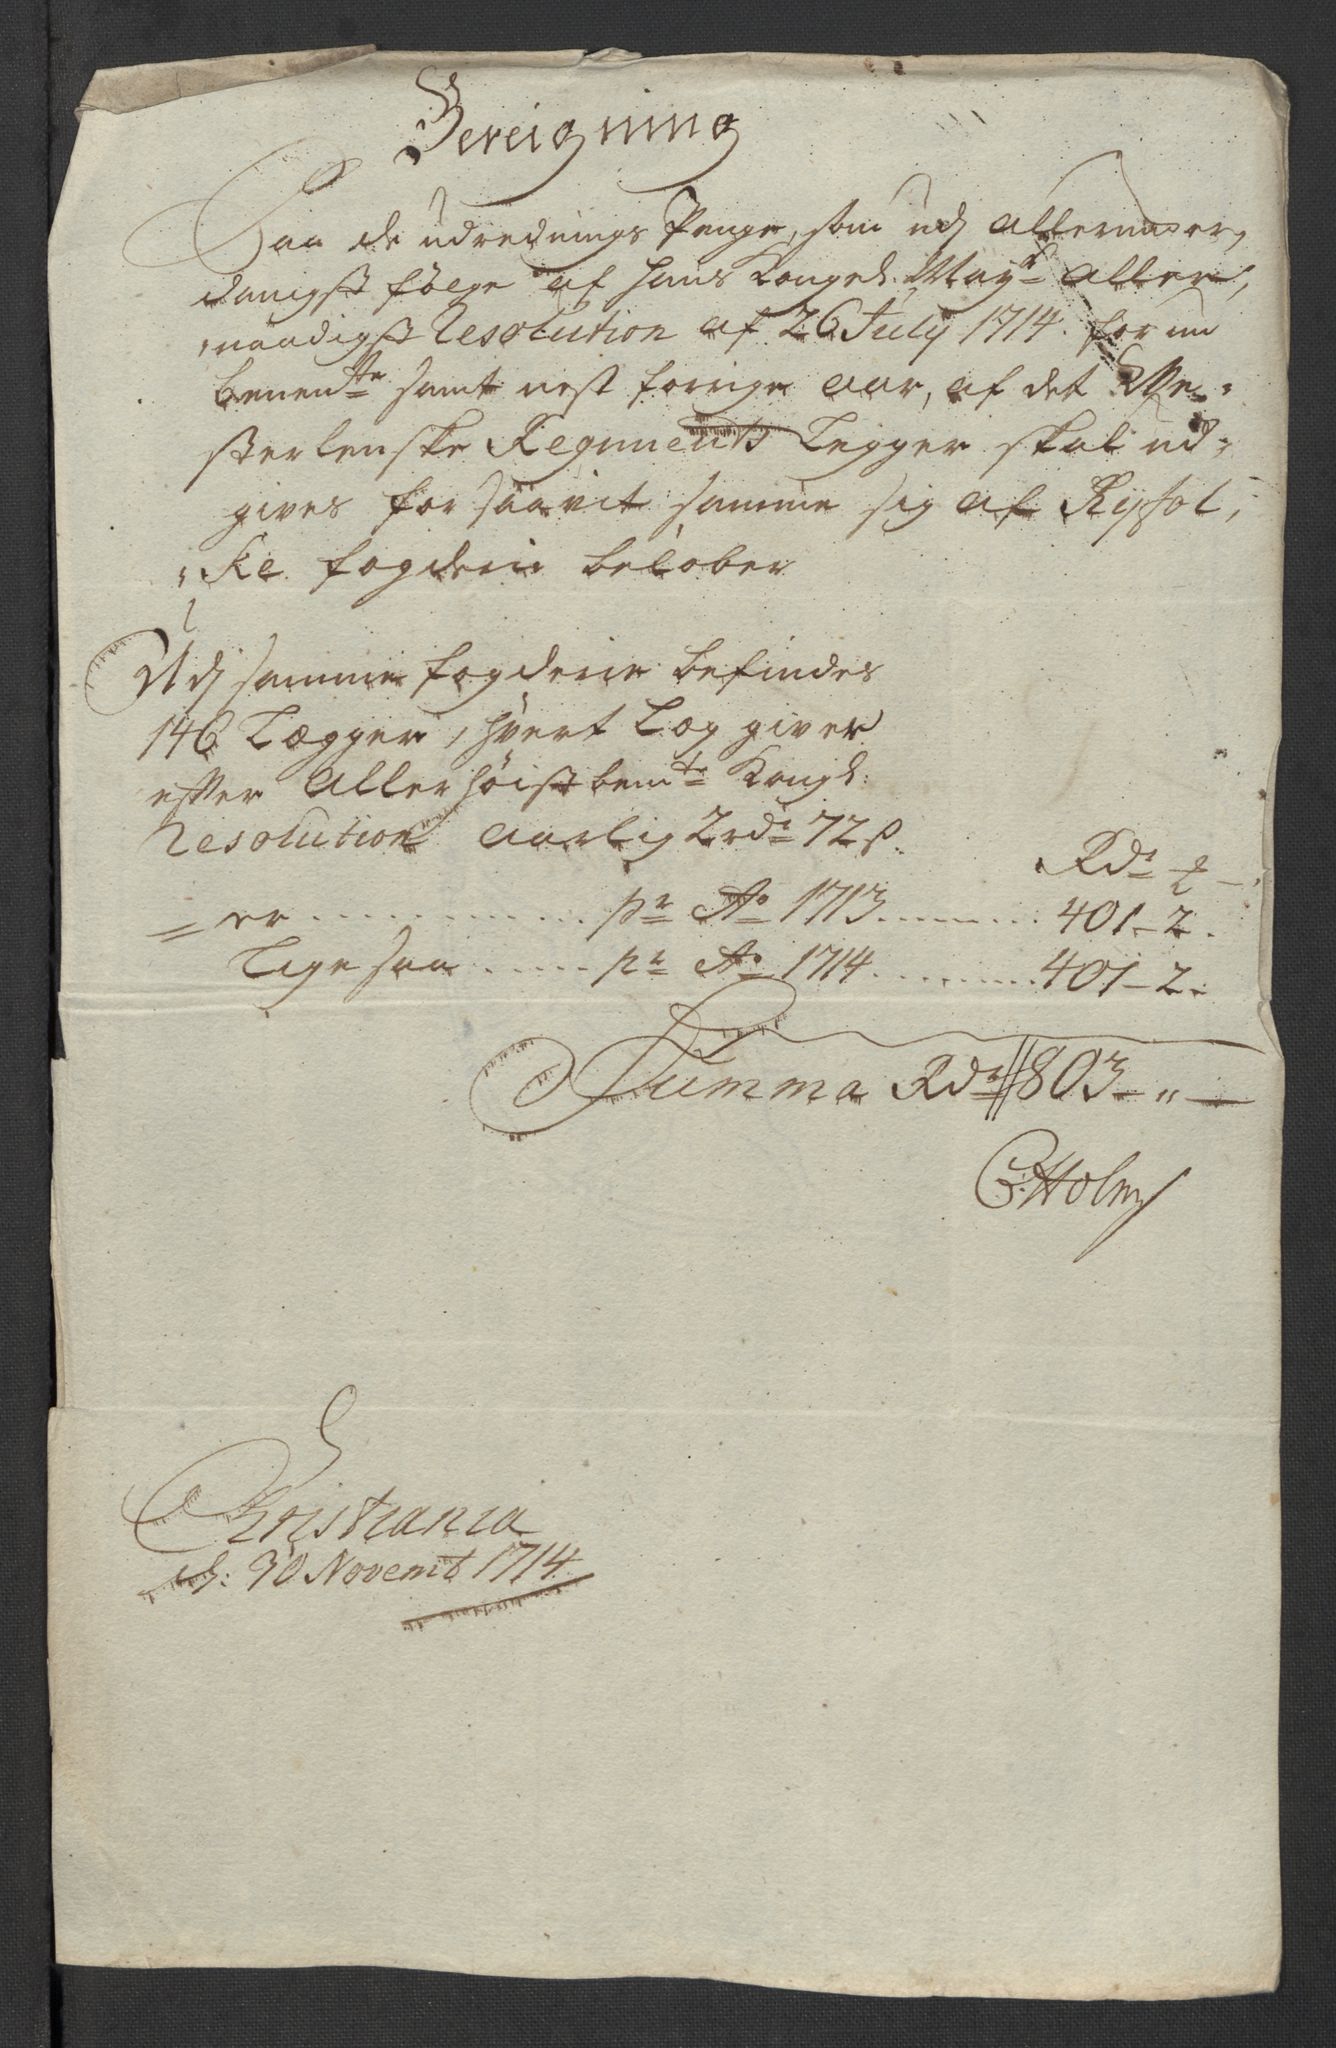 Bereigning
Paa de udrednings Penge, som udj allerunder,
danigst følge af Hans Kongel: Mayts aller,
naadigst Resolution af 26 July 1714. for nu
benente samt nest forrige aar, af det We-
sterlenske Regiments Legger skal ud-
gives for saavit samme sig af Ryfol,
ke fogderie beløber
Udj samme fogderie befindes
146 Lægger, hvert Læg giver
efter Allerhøistbemte Kongl:
Resolution aarlig 2 rdr 72 s.
Rdr
er ........ pr Ao 1713 ....... 401 - 2.
Ligesaa ...... pr Ao 1714 ....... 401 - 2.
Summa Rdr 803 - " -
C: Holm
Christiania
d: 30 Novemb 1714